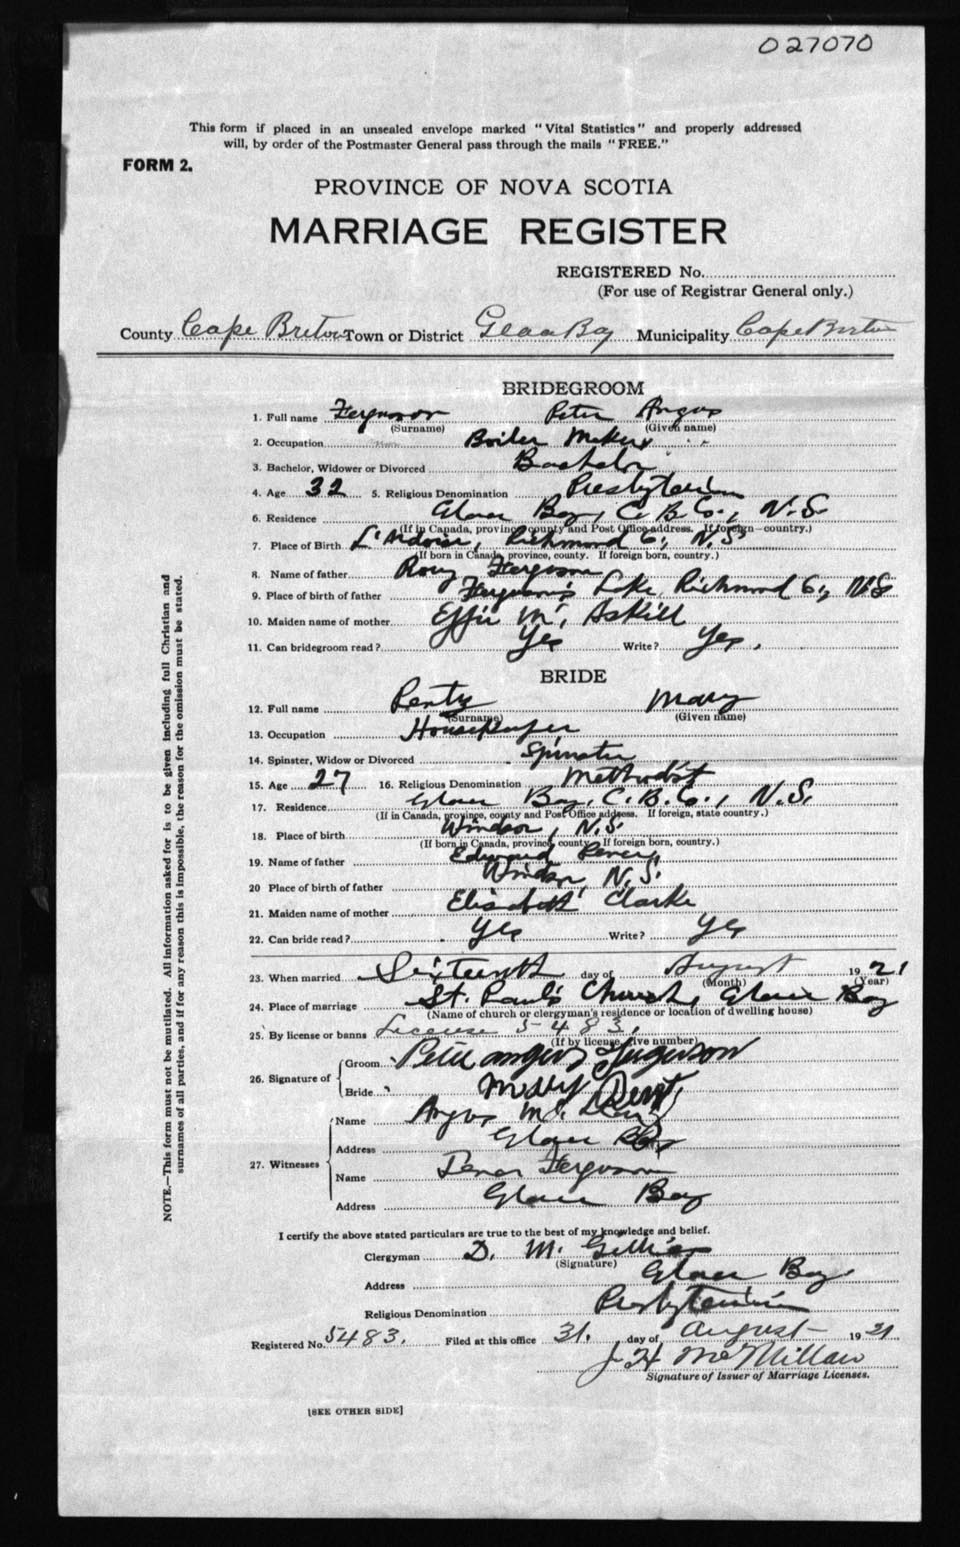 027070
This form if placed in an unsealed envelope marked "Vital Statistics" and properly addressed
will, by order of the Postmaster General pass through the mails "FREE."
FORM 2.
PROVINCE OF NOVA SCOTIA
MARRIAGE REGISTER
REGISTERED No.
(For use of Registrar General only.)
County Cape Breton Town or District Glace Bay Municipality Cape Breton
BRIDEGROOM
1. Full name Ferguson Peter Angus
(Surname) (Given name)
2. Occupation Boiler Maker
3. Bachelor, Widower or Divorced Bachelor
4. Age 32 5. Religious Denomination Presbyterian
6. Residence Glace Bay, C. B. Co., N.S.
(If in Canada, province, county and Post Office address. If foreign—country.)
7. Place of Birth L'Ardoise, Richmond Co., N.S.
(If born in Canada, province, county. If foreign born, country.)
8. Name of father Rory Ferguson
9. Place of birth of father Ferguson's Lake, Richmond Co., N.S
10. Maiden name of mother Effie Mc Askill
11. Can bridegroom read? Yes Write? Yes.
BRIDE
12. Full name Mary
(Surname) (Given name)
13. Occupation Housekeeper
14. Spinster, Widow or Divorced Spinster
15. Age 27 16. Religious Denomination Methodist
17. Residence Glace Bay, C. B. Co., N.S.
(If in Canada, province, county and Post Office address. If foreign, state country.)
18. Place of birth Windsor, N.S.
(If born in Canada, province, county. If foreign born, country.)
19. Name of father Edward
20 Place of birth of father Windsor, N.S.
21. Maiden name of mother Elizabeth Clarke
22. Can bride read? Yes Write? Yes
23. When married Sixteenth day of August 1921
(Month) (Year)
24. Place of marriage St. Paul's Church, Glace Bay
(Name of church or clergyman's residence or location of dwelling house)
25. By license or banns License 5483.
(If by license, give number)
26. Signature of Groom Peter Angus Ferguson
Bride
27. Witnesses Name Angus
Address Glace Bay
Name Ferguson
Address Glace Bay
I certify the above stated particulars are true to the best of my knowledge and belief.
Clergyman D. M. Gillies
(Signature)
Address Glace Bay
Religious Denomination Presbyterian
Registered No. 5483. Filed at this office 31. day of August 1921
J H McMillan
Signature of Issuer of Marriage Licenses.
[SEE OTHER SIDE]
NOTE.—This form must not be mutilated. All information asked for is to be given including full Christian and
surnames of all parties, and if for any reason this is impossible, the reason for the omission must be stated.